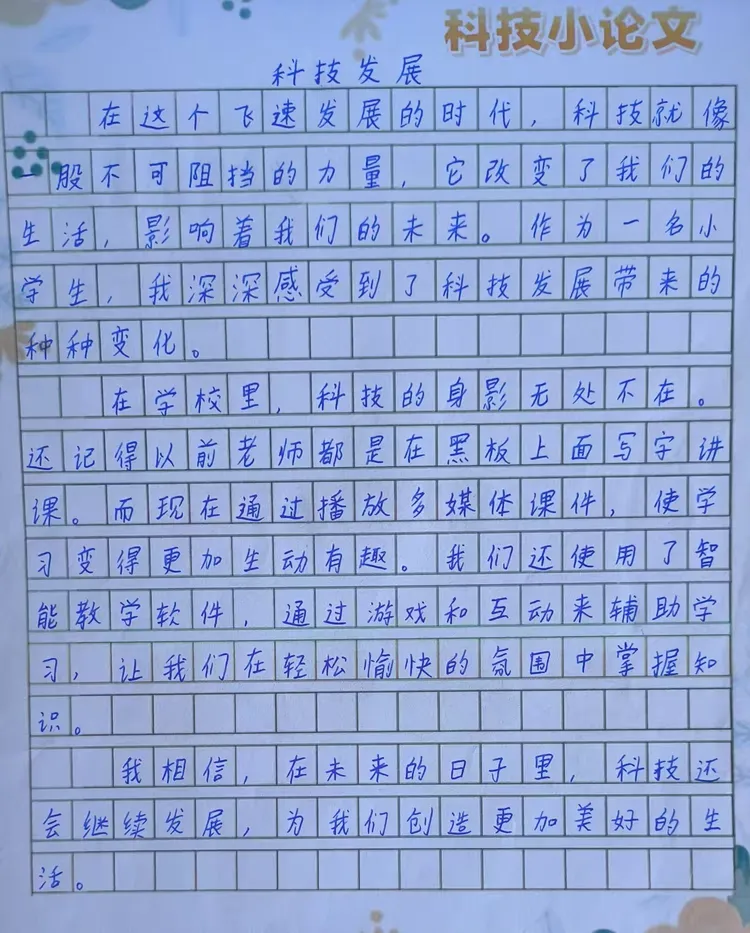 科技小论文
科技发展
在这个飞速发展的时代，科技就像
一股不可阻挡的力量，它改变了我们的
生活，影响着我们的未来。作为一名小
学生，我深深感受到了科技发展带来的
种种变化。
在学校里，科技的身影无处不在。
还记得以前老师都是在黑板上面写字讲
课。而现在通过播放多媒体课件，使学
习变得更加生动有趣。我们还使用了智
能教学软件，通过游戏和互动来辅助学
习，让我们在轻松愉快的氛围中掌握知
识。
我相信，在未来的日子里，科技还
会继续发展，为我们创造更加美好的生
活。